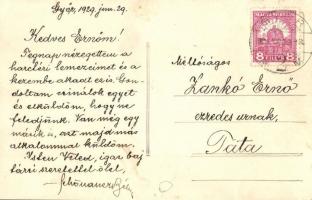 Győr, 1929. jun. 29.
Kedves Ernőm!
Tegnap nézegettem a
harctéri lemezeimet és a
kezembe akadt ez is. Gon-
doltam csinálok egyet
és elküldöm, hogy ne
feledjünk. Van még egy
másik is, azt majd más
alkalommal küldöm.
Isten Veled, igaz baj-
társi szeretettel ölel,
Méltóságos
Zankó Ernő
ezredes urnak,
Tata
8